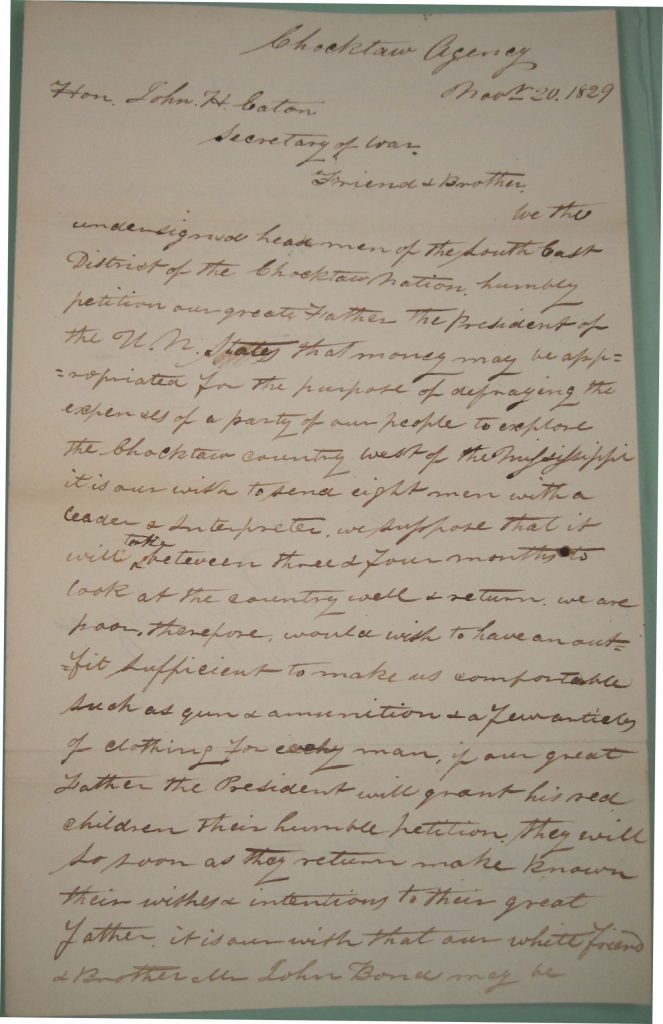 Chocktaw Agency
Novr. 20. 1829
Hon. John. H. Eaton
Secretary of War.
Friend & Brother.
We the
undersigned head men of the South East
District of the Chocktaw Nation. humbly
petition our greate Father the President of
the U. N. States that money may be app=
=ropriated for the purpose of defraying the
expences of a party of our people to explore
the Chocktaw country west of the Mississippi
it is our wish to send eight men with a
leader & Interpreter. we suppose that it
will take between three & four months to
look at the country well & return. we are
poor, therefore, would wish to have an out=
=fit sufficient to make us comfortable
such as gun & amunition & a few articles
of clothing for each man, if our great
Father the President will grant his red
children their humble petition. they will
so soon as they return make known
their wishes & intentions to their great
Father. it is our wish that our white friend
& Brother Mr John Bond may be